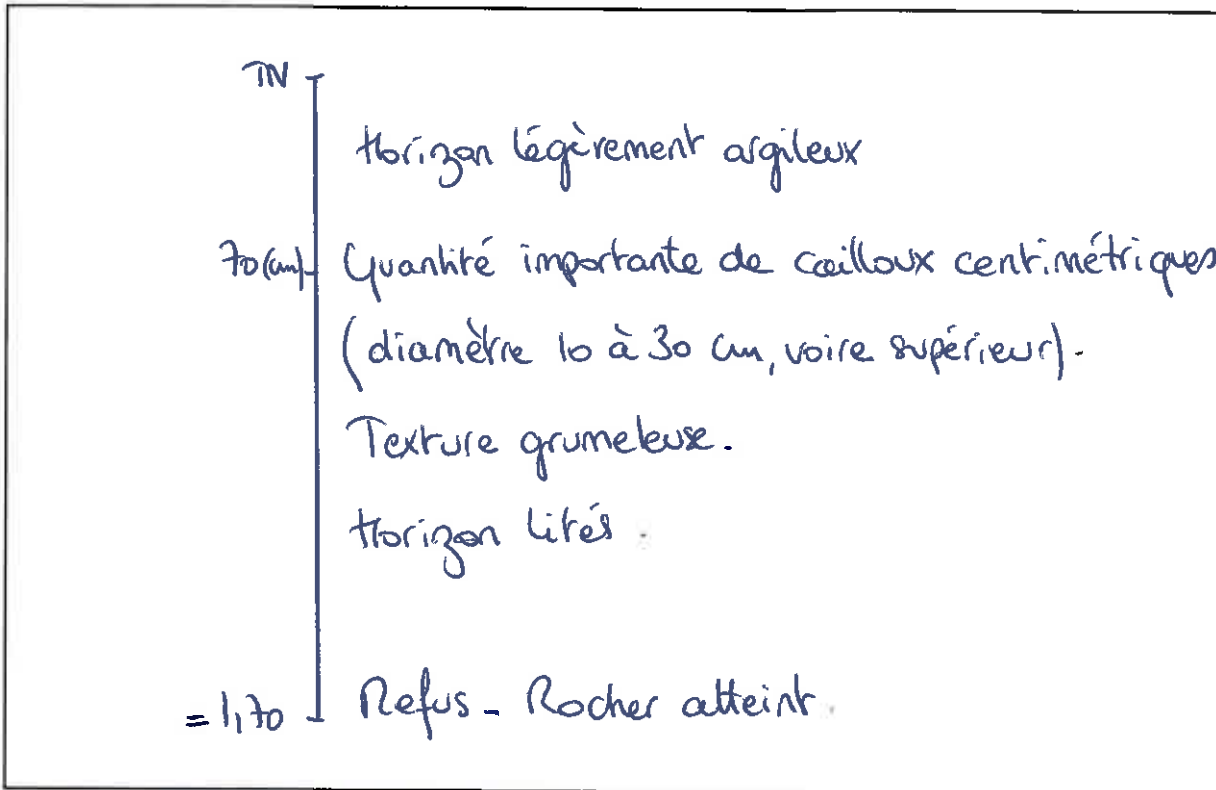 TN
Horizon légèrement argileux
70 (cm) Quantité importante de cailloux centimétriques
(diamètre 10 à 30 cm, voire supérieur).
Texture grumeleuse.
Horizon lités.
= 1,70 Refus - Rocher atteint.